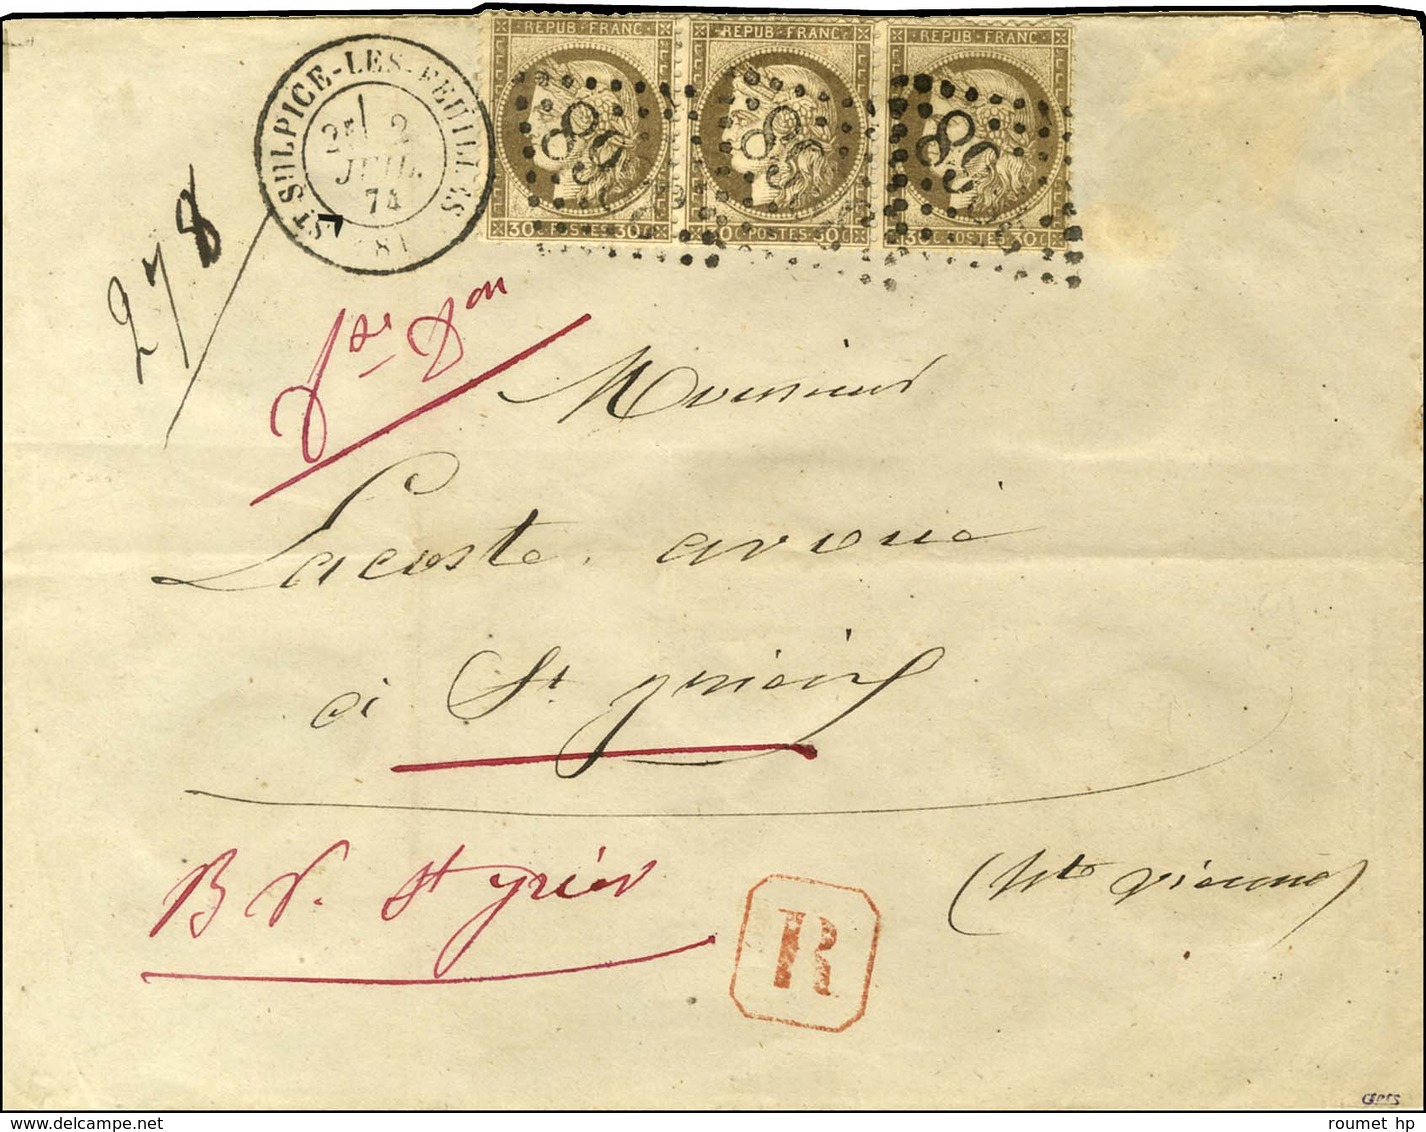 REPUB · FRANC · REPUB · FRANC · REPUB · FRANC ·
ST SULPICE-LES-FEUILLES
2E / 2
JUIL.
74
(81)
30 C. POSTES 30 C. 30 C. POSTES 30 C. 30 C. POSTES 30 C.
278
Monsieur
Lacoste, avoué
à St Yrieix
B P. St Yrieix
(Hte Vienne)
R
CERES
roumet hp